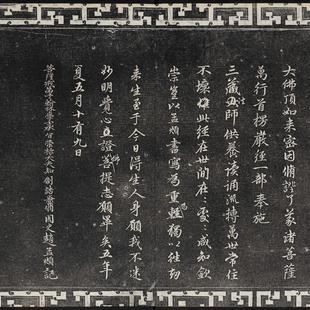 大佛頂如来密因脩證了義諸菩薩
萬行首楞嚴經一部奉施
三藏法師供養讀誦流轉萬世常住
不壞俾此經在世間在々處々咸知欽
崇豈以孟頫書寫為重軽獨以往劫
来生至于今日得生人身願我不迷
妙明覺心直證菩提志願畢矣五年
夏五月十有九日
菩薩戒弟子翰林學士承旨榮祿大夫知制誥兼脩國史趙孟頫記